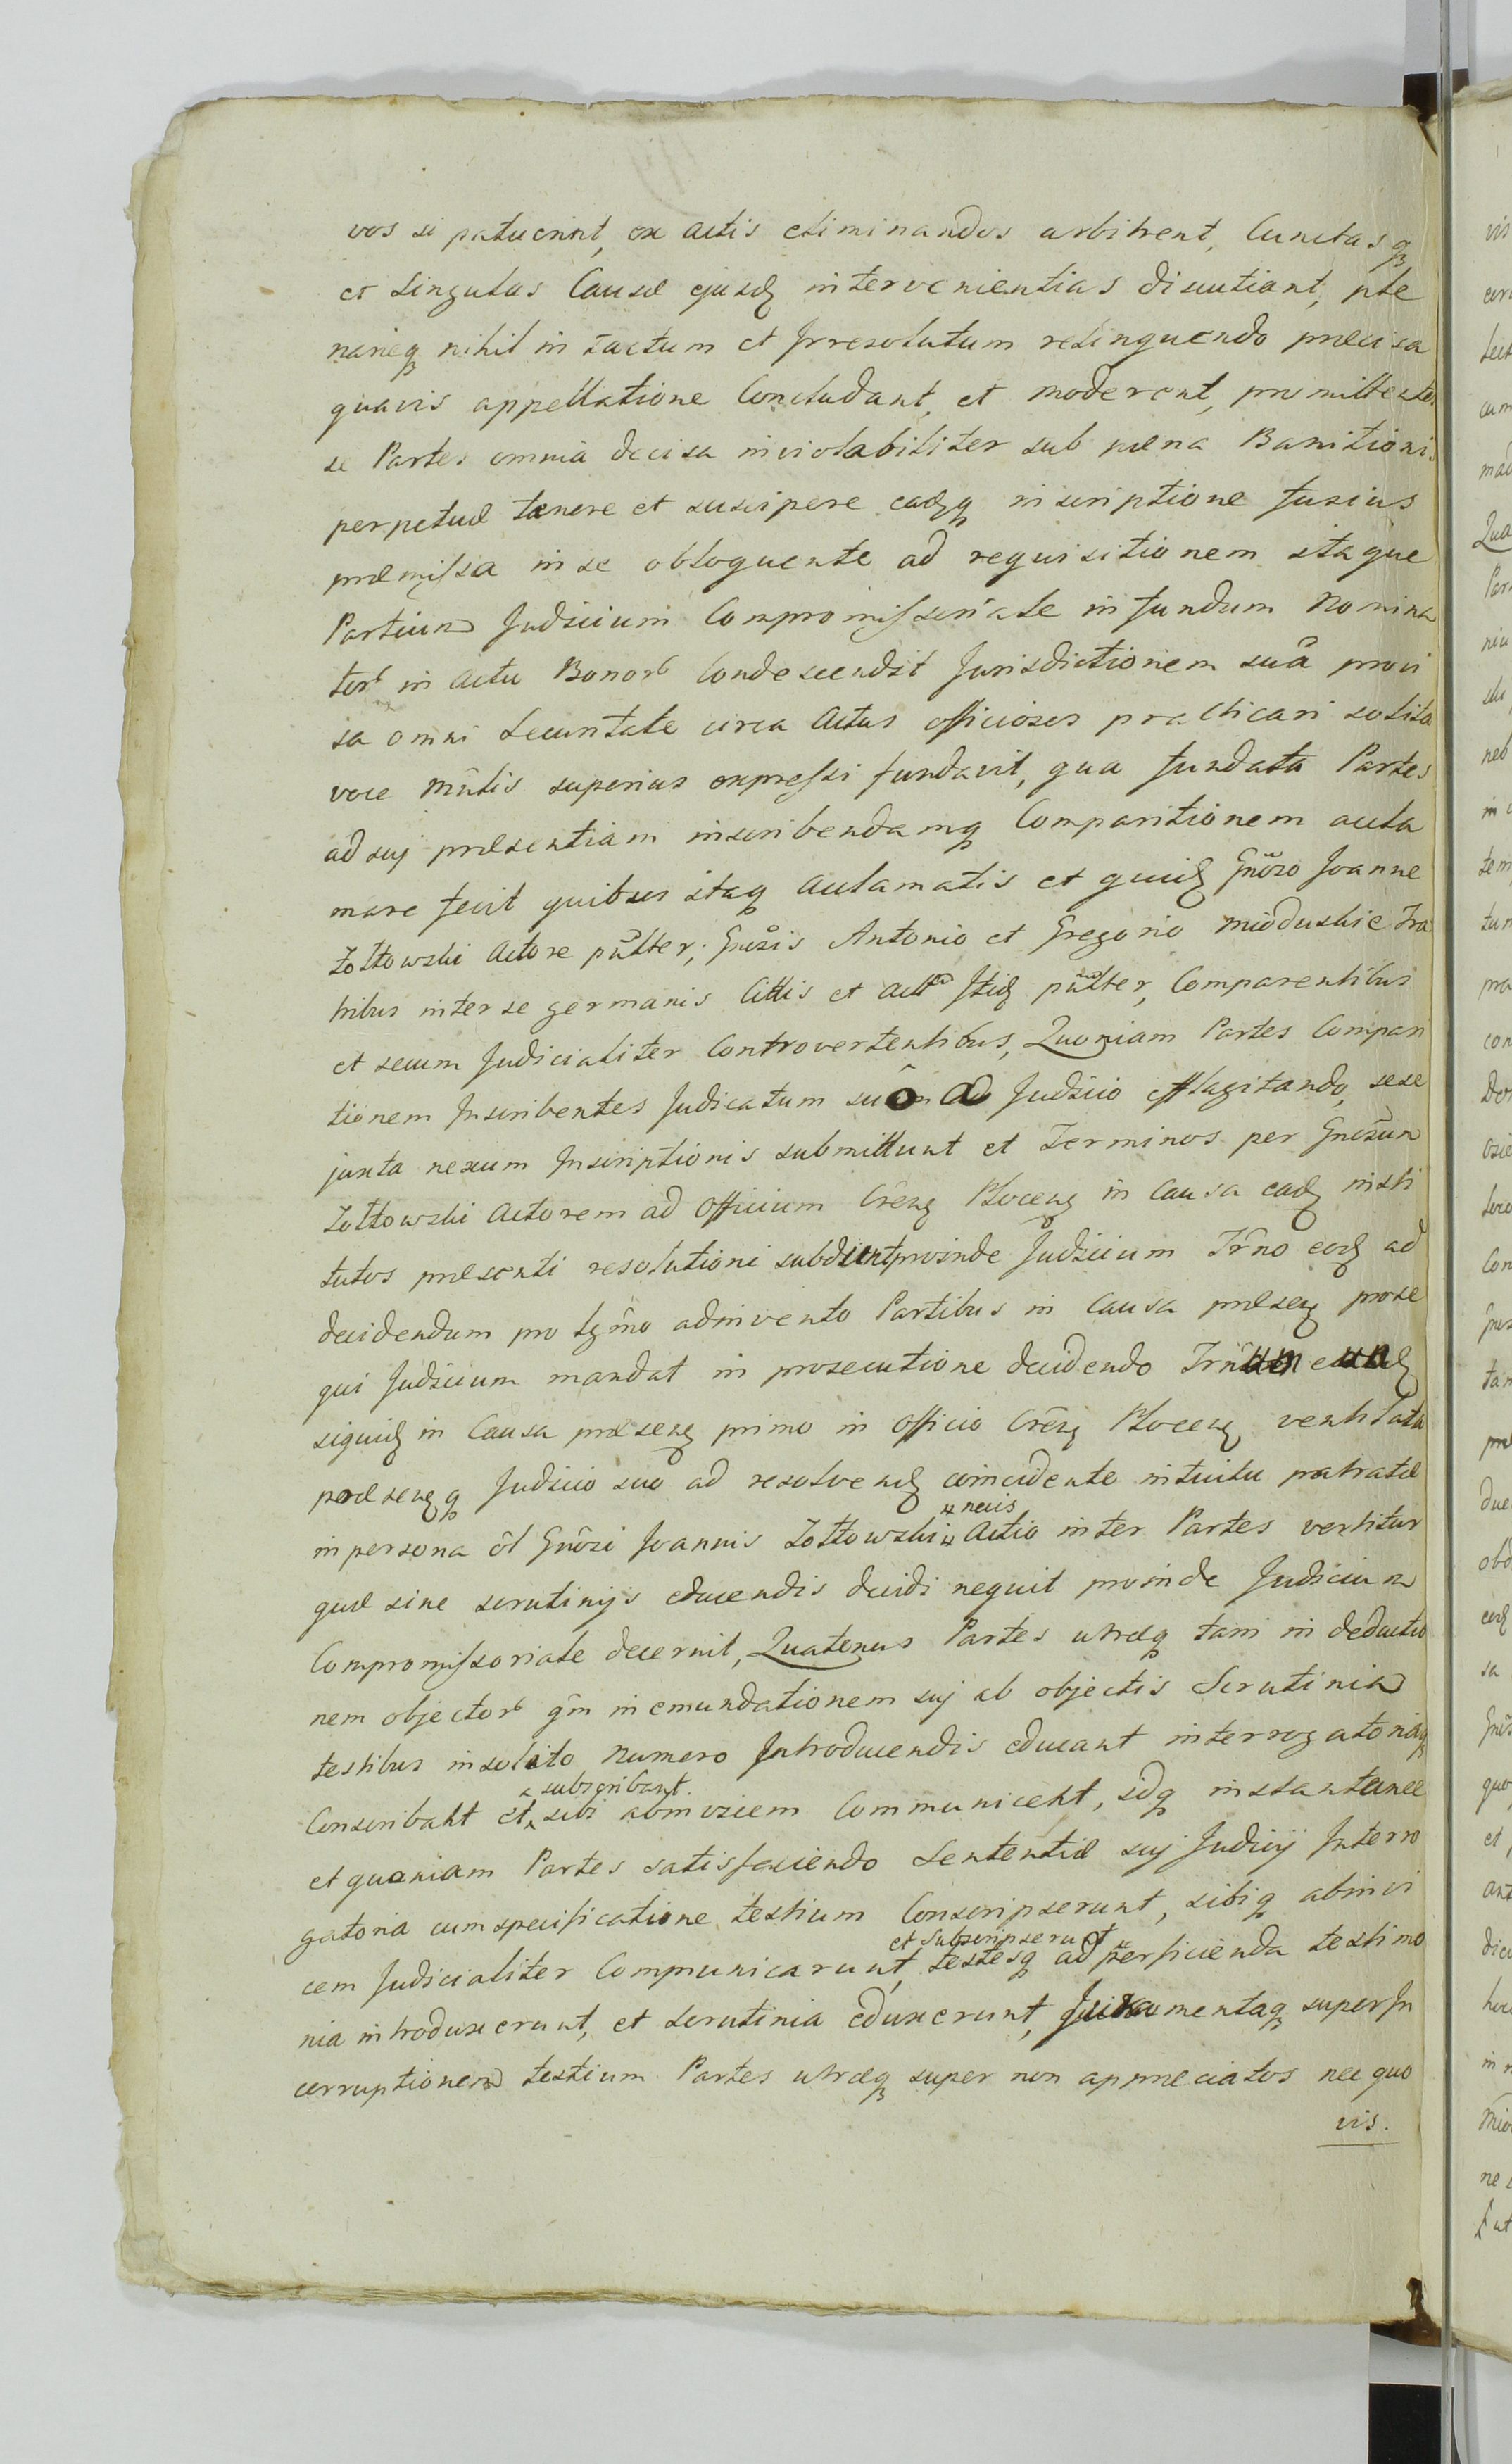 vos si patuerint, ex Actis eliminandos arbitrent, Cunctasq
et Singulas Causæ ejusd intervenientias discutiant, ple
narieq nihil intactum et Irresolutum relinquendo præcisa
quavis appellatione Concludant, et moderent, promittentes
se Partes omnia decisa inviolabiliter sub pæna Banitionis
perpetuæ tenere et suscipere eadq inscriptione fusius
præmissa in se obloquente ad requisitionem itaque
Partium Judicium Compromissoriale in fundum Nomina
tor in Actu Bonor Condescendit Jurisdictionem suã provi
sa omni Securitate circa Actus officiosos practicari solita
voce Mñlis superius expressi fundavit, qua fundata Partes
ad sui præsentiam inscribendamq Comparitionem accla
mare fecit quibus itaq Acclamatis et quid Gnõso Joanne
Zołtowski Actore pñlter, Gnõsis Antonio et Gregorio Mioduskie Fra
tribus inter se germanis Cittis et Itid pñlter, Comparentibus
et secum Judicialiter Controvertentibus, Quoniam Partes Compari
tionem Inscribentes Judicatum Judicio efflagitando, sese
juxta nexum Inscriptionis submittunt et Terminos per Gnõsum
Zołtowski Actorem ad Officium Crên Plocen in Causa ead insti
tutos præsenti resolutioni subdunt proinde Judicium Trño eod ad
decidendum pro lgm̃o adinvento Partibus in Causa præsen prose
qui Judicium mandat in prosecutione decidendo
siquid in Causa præsen primo in Officio Crên Plocen ventilata
præsenq Judicio suo ad resolvend coincidente intuitu patratæ
in persona õl Gnõsi Joannis Zołtowski necis Actio inter Partes vertitur
quæ sine scrutinijs educendis decidi nequit proinde Judicium
Compromissoriale decernit, Quatenus Partes utræq tam in deductio
nem objector qm̃ in emundationem sui ab objectis Scrutinia
testibus in solito Numero Introducendis educant interrogatoriaq
Conscribant et subscribant sibi abinvicem Communicent, idq instantanee
et quoniam Partes satisfaciendo Sententiæ sui Judicij Interro
gatoria cum specificatione testium Conscripserunt, sibiq abinvi
cem Judicialiter Communicarunt, et subscripserunt testesq ad perficienda testimo
nia introduxerunt, et Scrutinia eduxerunt, Juramentaq super In
corruptionem testium Partes utræq super non appræciatos nec quo
vis.